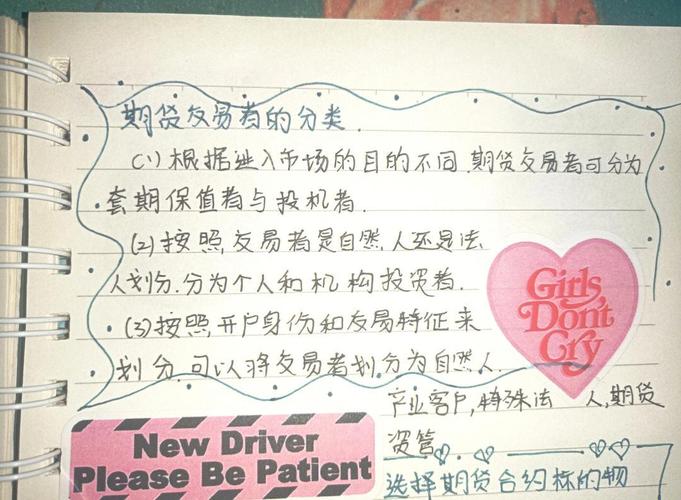 期货交易者的分类.
(1)根据进入市场的目的不同.期货交易者可分为
套期保值者与投机者.
(2)按照交易者是自然人还是法
人划分.分为个人和机构投资者.
(3)按照开户身份和交易特征来
划分.可以将交易者划分为自然人.
产业客户,特殊法 人,期货
资管.
选择期货合约标的物
Girls
Don't
Cry
New Driver
Please Be Patient